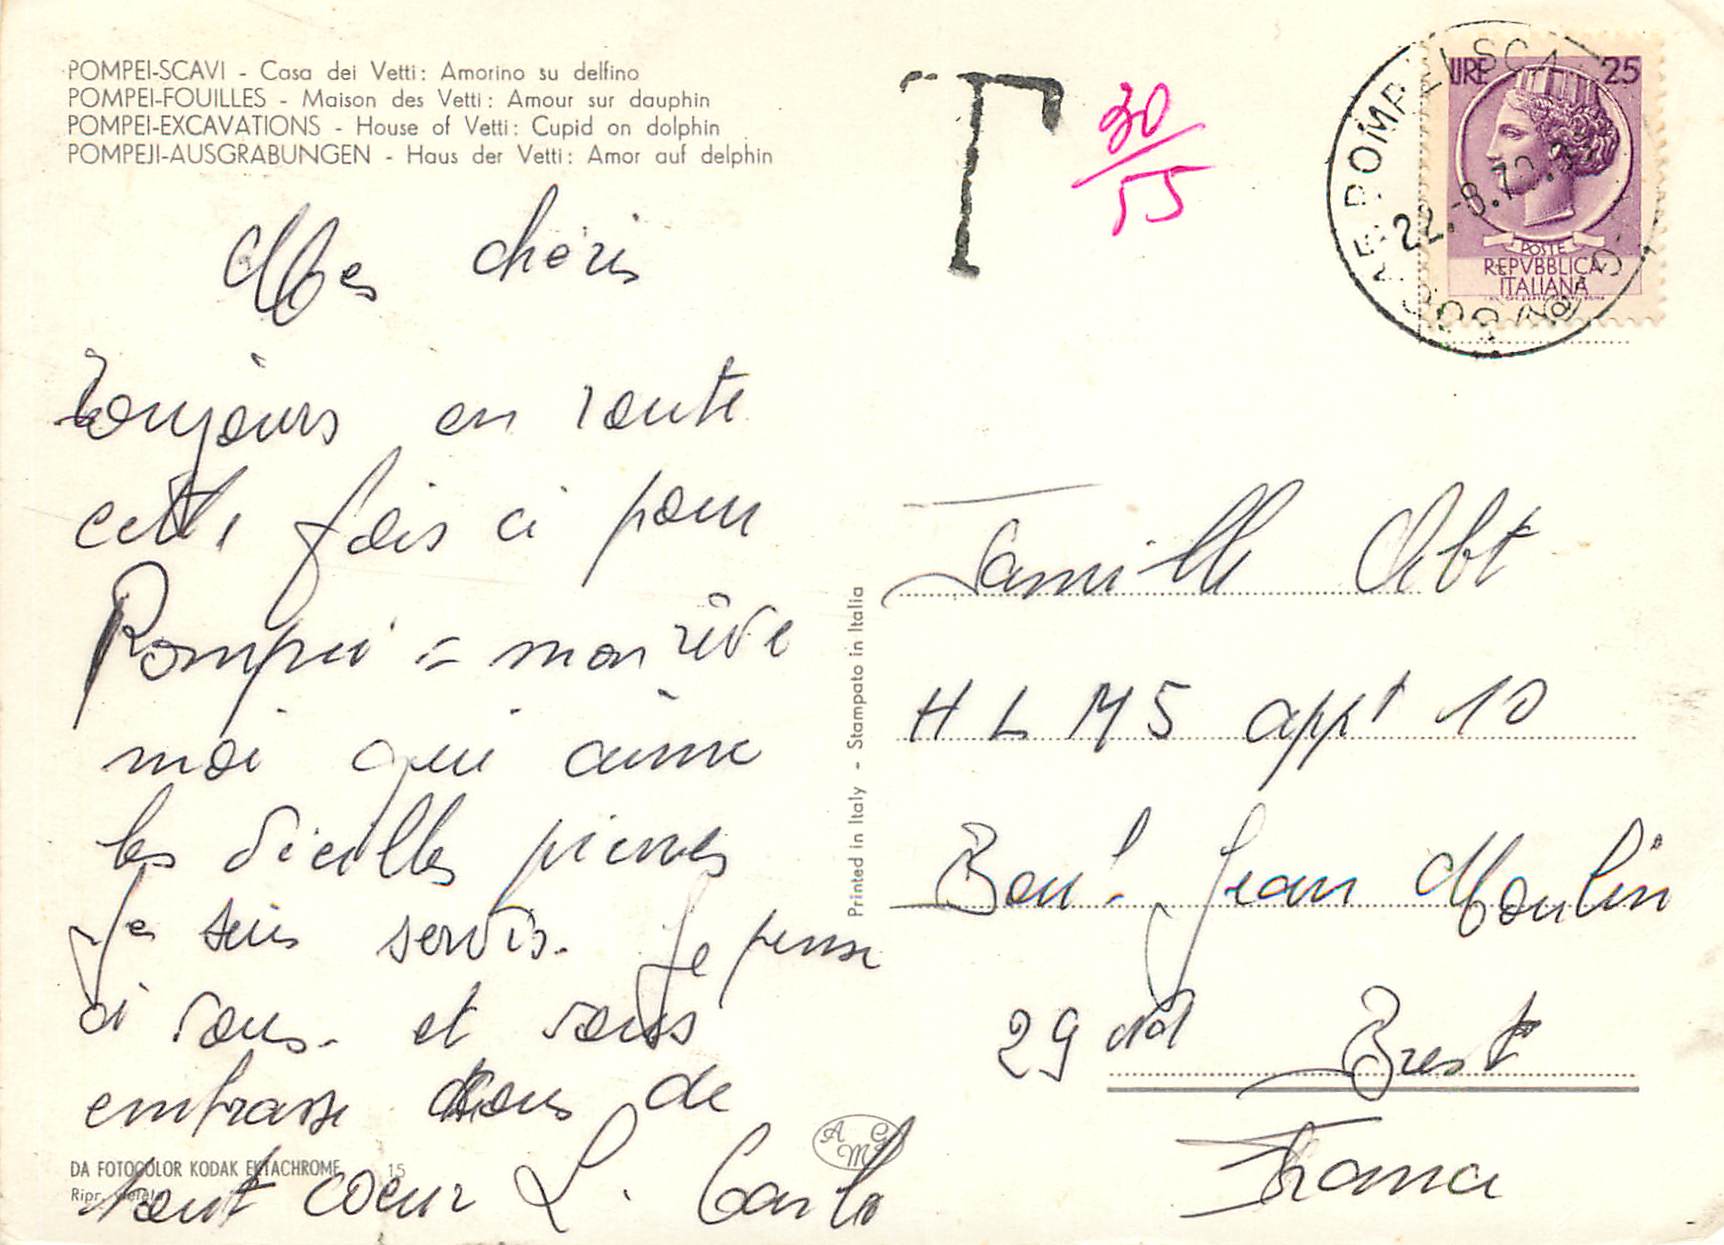 POMPEI-SCAVI - Casa dei Vetti: Amorino su delfino
POMPEI-FOUILLES - Maison des Vetti: Amour sur dauphin
POMPEI-EXCAVATIONS - House of Vetti: Cupid on dolphin
POMPEJI-AUSGRABUNGEN - Haus der Vetti: Amor auf delphin
Mes chéris
toujours en route
cette fois ci pour
Pompei = mon rêve
moi qui aime
les vieilles pierres
je suis servis. Je pense
à vous. et vous
embrasse tous de
tout coeur L.
DA FOTOCOLOR KODAK EKTACHROME 15
Ripr. vietata
A G M
Printed in Italy - Stampato in Italia
T 30
55
POMPEI SCA
22.-8.70.
LIRE 25
POSTE
REPVBBLICA
ITALIANA
Famille Abt
H L M 5 appt 10
Boul. Jean Moulin
29 nd Brest
France